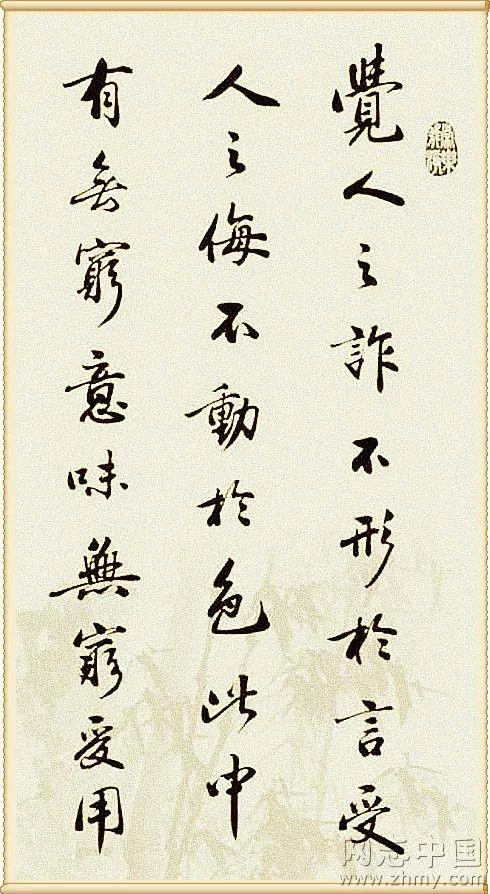 覺人之詐不形於言受
人之侮不動於色此中
有無窮意味無窮受用
网志中国
www.zhmy.com